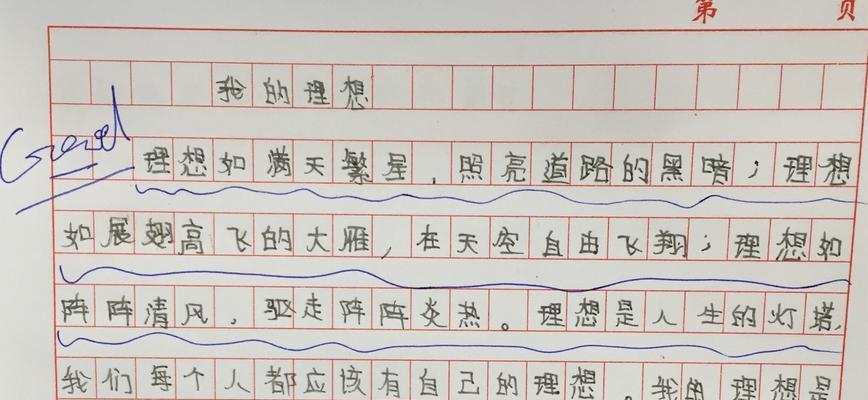 第 页
我的理想
Good
理想如满天繁星，照亮道路的黑暗；理想
如展翅高飞的大雁，在天空自由飞翔；理想如
阵阵清风，驱走阵阵炎热。理想是人生的灯塔，
我们每个人都应该有自己的理想。我的理想是